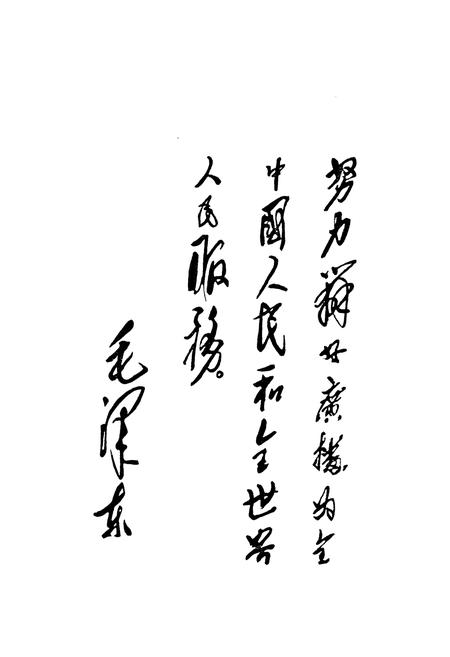 努力辦好廣播為全
中國人民和全世界
人民服務。
毛泽东